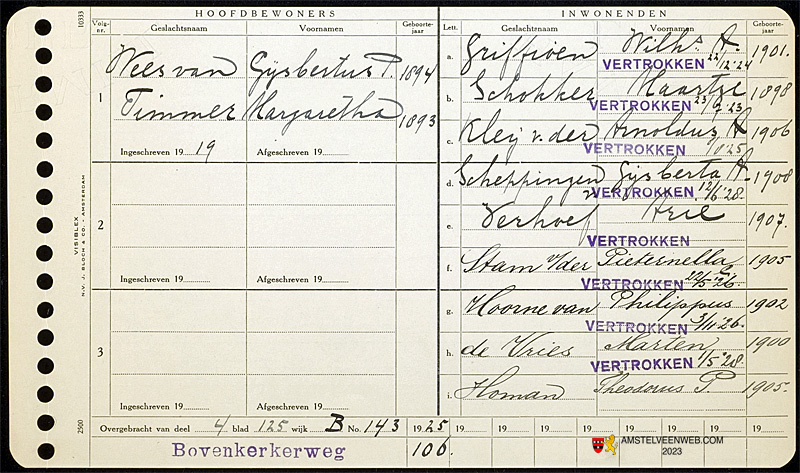 HOOFDBEWONERS
Volg-nr. Geslachtsnaam Voornamen Geboorte-jaar
1 Wees van Gijsbertus P. 1894
Timmer Margaretha 1893
Ingeschreven 19 19 Afgeschreven 19
2
Ingeschreven 19 Afgeschreven 19
3
Ingeschreven 19 Afgeschreven 19
INWONENDEN
Lett. Geslachtsnaam Voornamen Geboorte-jaar
a. Griffioen Wilhs A. 1901.
VERTROKKEN 22/12'24
b. Schokker Maartje 1898
VERTROKKEN 23/ 23
c. Kleij v. der Arnoldus A 1906
VERTROKKEN 25
d. Scheppingen v Gijsberta A. 1908
VERTROKKEN 12/6'28.
e. Verhoef Arie 1907.
VERTROKKEN
f. Stam v/der Pieternella G. 1905
VERTROKKEN 5'26.
g. Hoorne van Philippus 1902
VERTROKKEN 3/11'26.
h. de Vries Marten 1900
VERTROKKEN 1/5'28.
i. Homan Theodorus P. 1905.
Overgebracht van deel 4 blad 125 wijk B No. 143 1925 19 19 19 19 19 19
Bovenkerkerweg 106.
10333
VISIBLEX
N.V. J. BLOCH & CO. - AMSTERDAM
2500
AMSTELVEENWEB.COM
2023